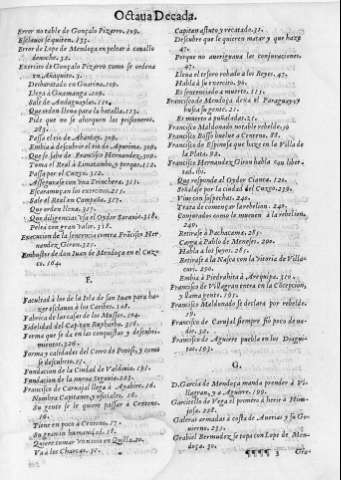 Octaua Decada.
Error notable de Gonçalo Pizarro. 109.
Esclauos se quiten. 133.
Error de Lope de Mendoça en pelear à cauallo
de noche. 32.
Exercito de Gonçalo Pizarro como se ordena
en Añaquito. 3.
Desbaratado en Guarina. 119.
Llega à
Sale de Andaguaylas. 110.
Que orden lleuo para la batalla. 113.
Pide que no se ahorquen los prisioneros.
283.
Passa el rio de Abancay. 309.
Embia à descubrir el rio de Aporima. 309.
Que se sabe de Francisco Hernandez. 309.
Toma el Real à Limatambo, y porque. 312.
Passa por el Cuzco. 312.
Assegurase con vna Trinchera. 315.
Escaramuçan los exercitos. 315.
Sale el Real con Complido. 317.
Que orden lleua. 317.
Que diligencias vsa el Oydor Sarauia. 318.
Pelea con gran valor. 318.
Execucion de la sentencia contra Frãcisco Her-
nandez Giron. 325.
Embustes de don Iuan de Mendoça en el Cuz-
co. 164.
F.
Facultad à los de la Isla de san Iuan para ha-
zer esclauos à los Caribes. 148.
Fabrica de las casas de los 204.
Fidelidad del Capitan 316.
Forma que se da en las conquistas, y descubri-
mientos. 226.
Forma y calidades del Cerro de Potosi, y como
se descubrio. 35.
Fundacion de la Ciudad de Valdiuia. 195.
Fundacion de la nueua Segouia. 205.
Francisco de Caruajal llega à 16.
Nombra Capitanes, y oficiales. 16.
Su gente se le quiere passar à Centeno.
16.
Tiene en poco à Centeno. 17.
Su gran inhumanidad. 18.
Quiere tomar vn nauio en Quilla. 20.
Va à los Charcas. 30.
Capitan astuto y recatado. 31.
Descubre que le quieren matar y que haze
47.
Porque no aueriguaua las conjuraciones.
47.
Lleua el tesoro robado à los Reyes. 47.
Habla à su exercito. 96.
Es sentenciado à muerte. 115.
Francisco de Mendoça dexa el Paraguay y
busca su gente. 21.
Es muerto à puñaladas. 21.
Francisco Maldonado notable rebelde. 36
Francisco Bosso buelue à Centeno. 88.
Francisco de Espinosa que haze en la Villa de
la Plata. 92.
Francisco Hernandez Giron habla con liber-
tad. ibi.
Que responde al Oydor Cianca. 120.
Señalase por la ciudad del Cuzco. 239.
Viue con sospechas. 240.
Trata de començar la rebelion. 240.
Conjurados como le mueuen à la rebelion.
240.
Retirase à Pachacama. 285.
Carga à Pablo de Meneses. 290.
Habla à los suyos. 285.
Retirase à la Nasca con la vitoria de Villa-
curi. 290.
Embia à Piedrahita à Arequipa. 310.
Francisco de Villagran entra en la Concepcion,
y llama gente. 195.
Francisco Maldonado se declara por rebelde.
19.
Francisco de Caruajal siempre fio poco de na-
die. 30.
Francisco de Aguirre puebla en los Diagui-
tas. 193.
G.
D. Garcia de Mendoça manda prender à Vi-
llagran, y à Aguirre. 199.
Garcitello de Vega el primero à herir à Hino-
josa. 228.
Galeras armadas à costa de Auerias y su Go-
uierno. 235.
Grabiel Bermudez se topa con Lope de Men-
doça. 30.
¶¶¶¶ 3
Gra-